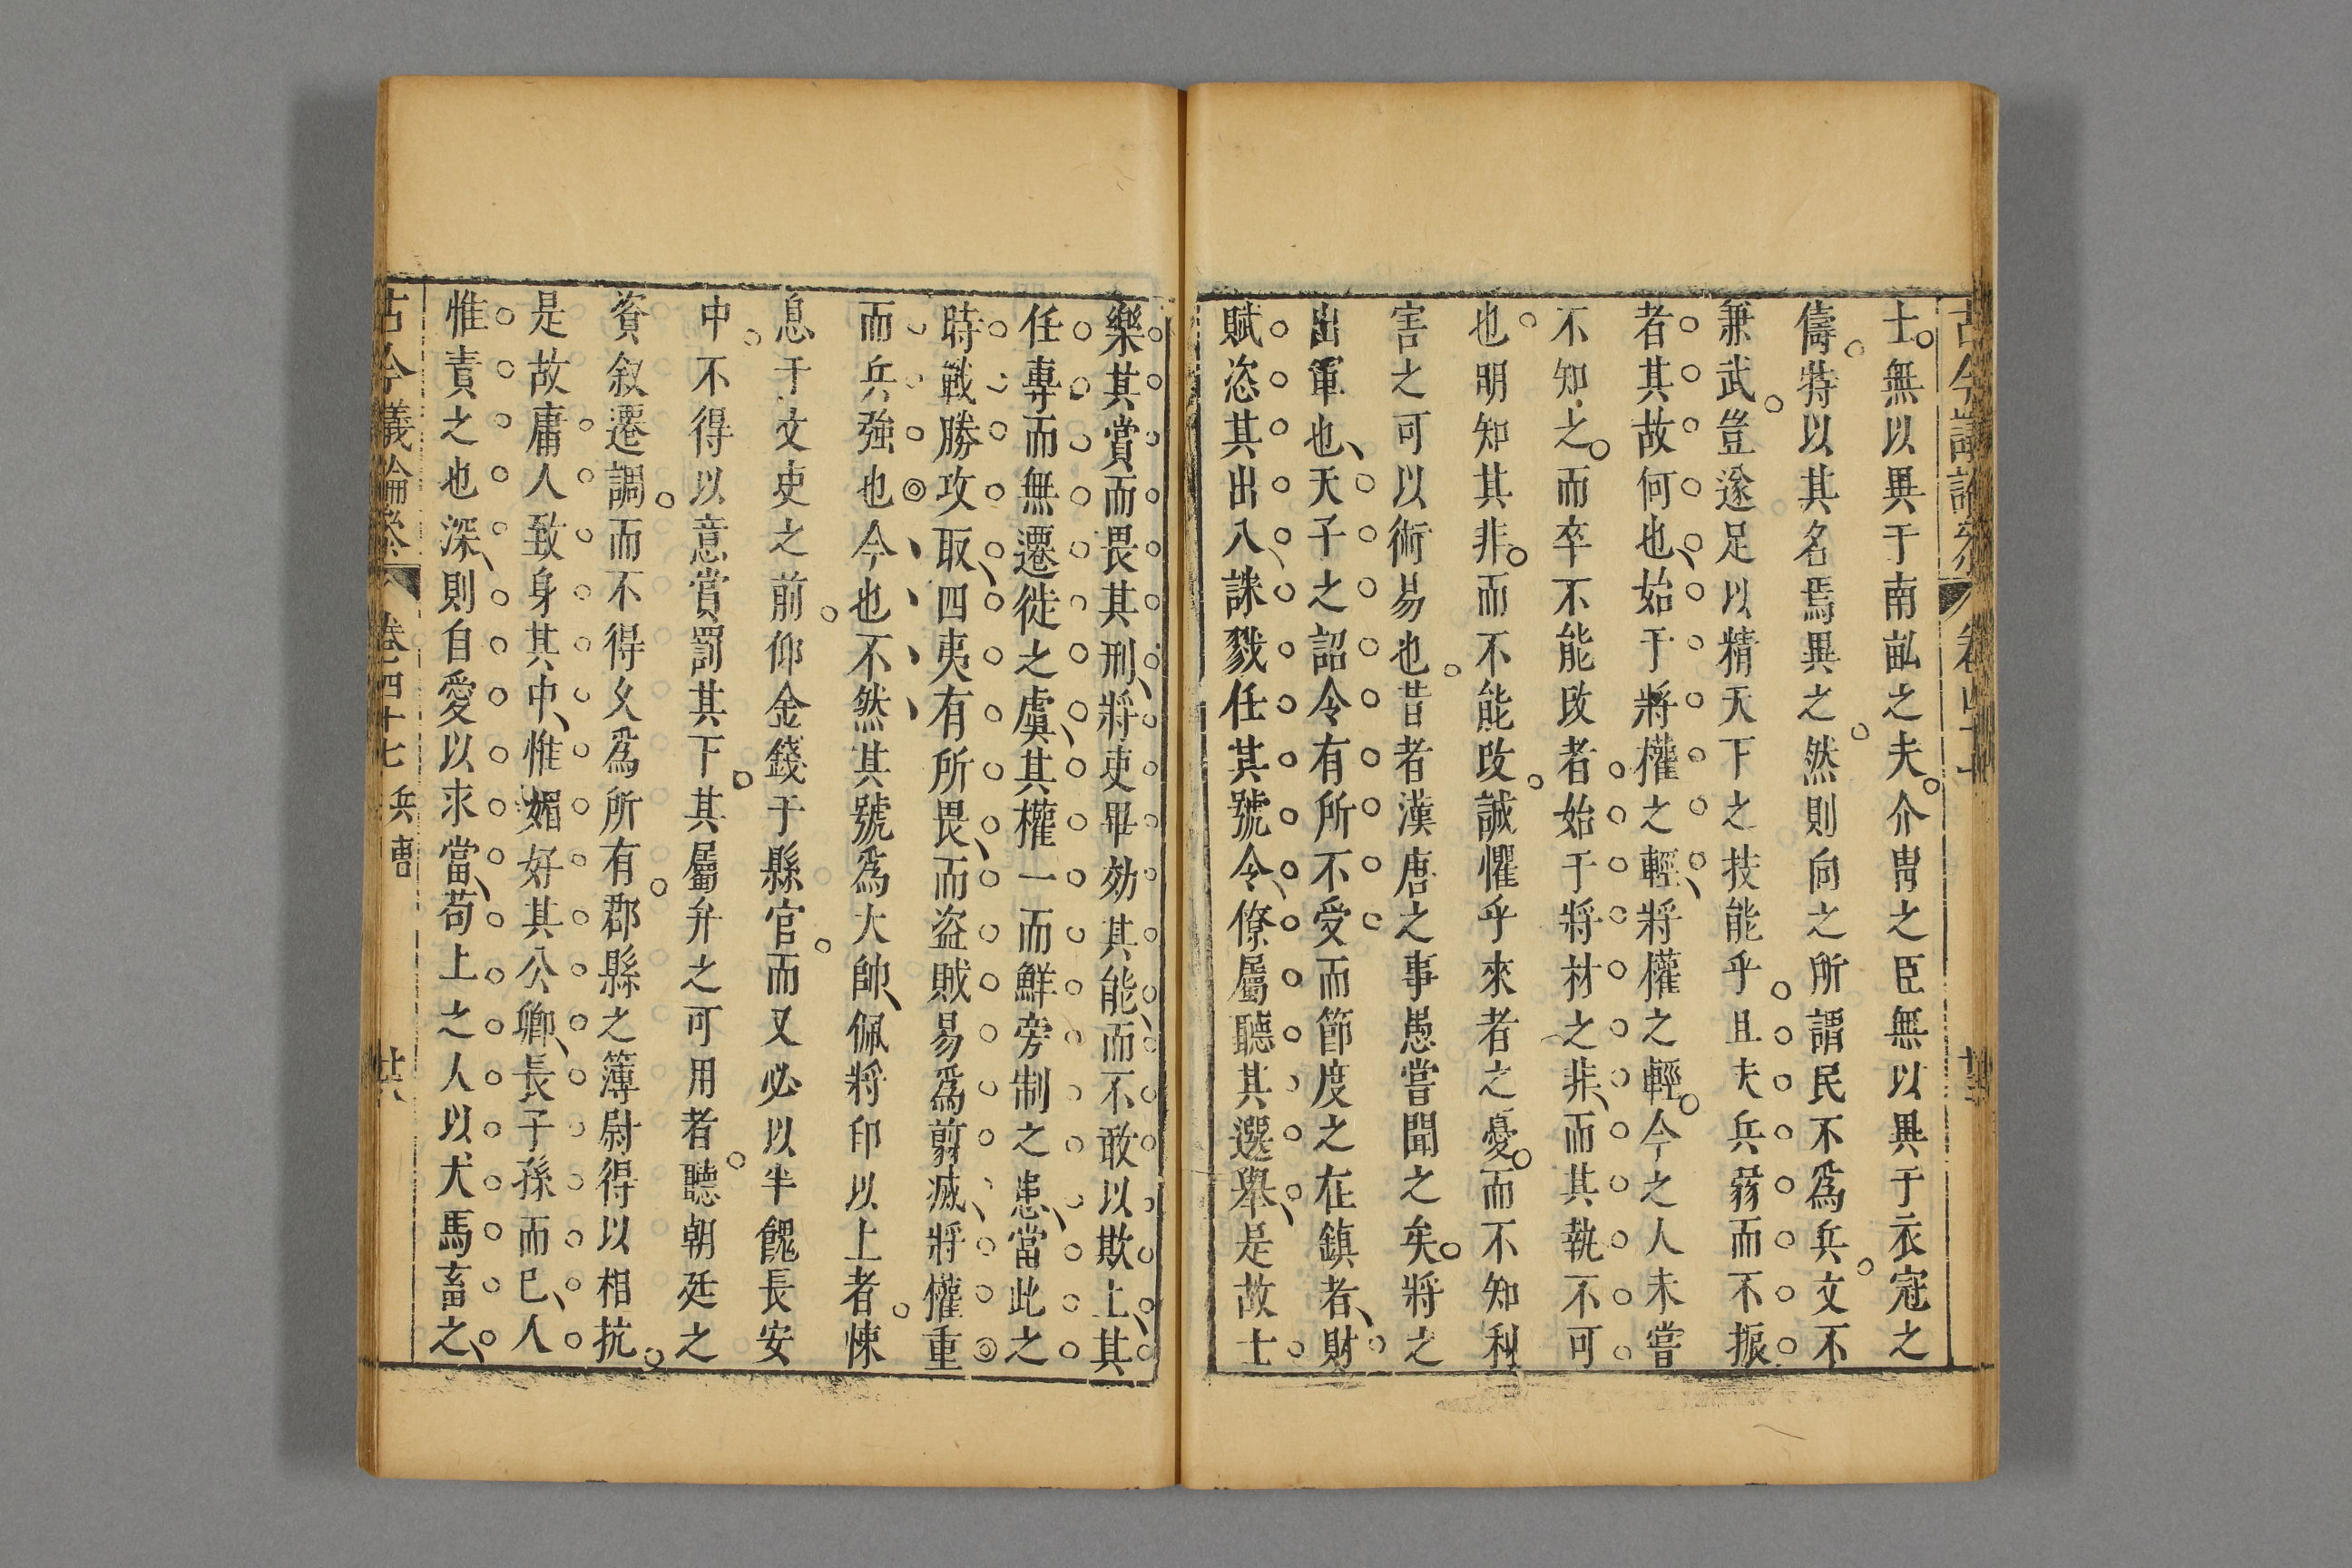 士無以異于南畝之夫介冑之臣無以異于衣冠之
儔特以其名焉異之然則向之所謂民不爲兵文不
兼武豈遂足以精天下之技能乎且夫兵弱而不振
者其故何也始于將權之輕將權之輕今之人未嘗
不知之而卒不能改者始于將材之非而其執不可
也明知其非而不能改誠懼乎來者之憂而不知利
害之可以術易也昔者漢唐之事愚嘗聞之矣將之
出軍也天子之詔令有所不受而節度之在鎮者財
賦恣其出入誅戮任其號令僚屬聽其選舉是故士
樂其賞而畏其刑將吏畢効其能而不敢以欺上其
任專而無遷徙之虞其權一而鮮旁制之患當此之
時戰勝攻取四夷有所畏而盜賊易爲剪滅將權重
而兵強也今也不然其號爲大帥佩將印以上者悚
息于文吏之前仰金錢于縣官而又必以半餽長安
中不得以意賞罰其下其屬弁之可用者聽朝廷之
資叙遷調而不得久爲所有郡縣之簿尉得以相抗
是故庸人致身其中惟媚好其公卿長子孫而已人
惟責之也深則自愛以求當苟上之人以犬馬畜之
古今議論叅 卷四十七 兵曹 廿六